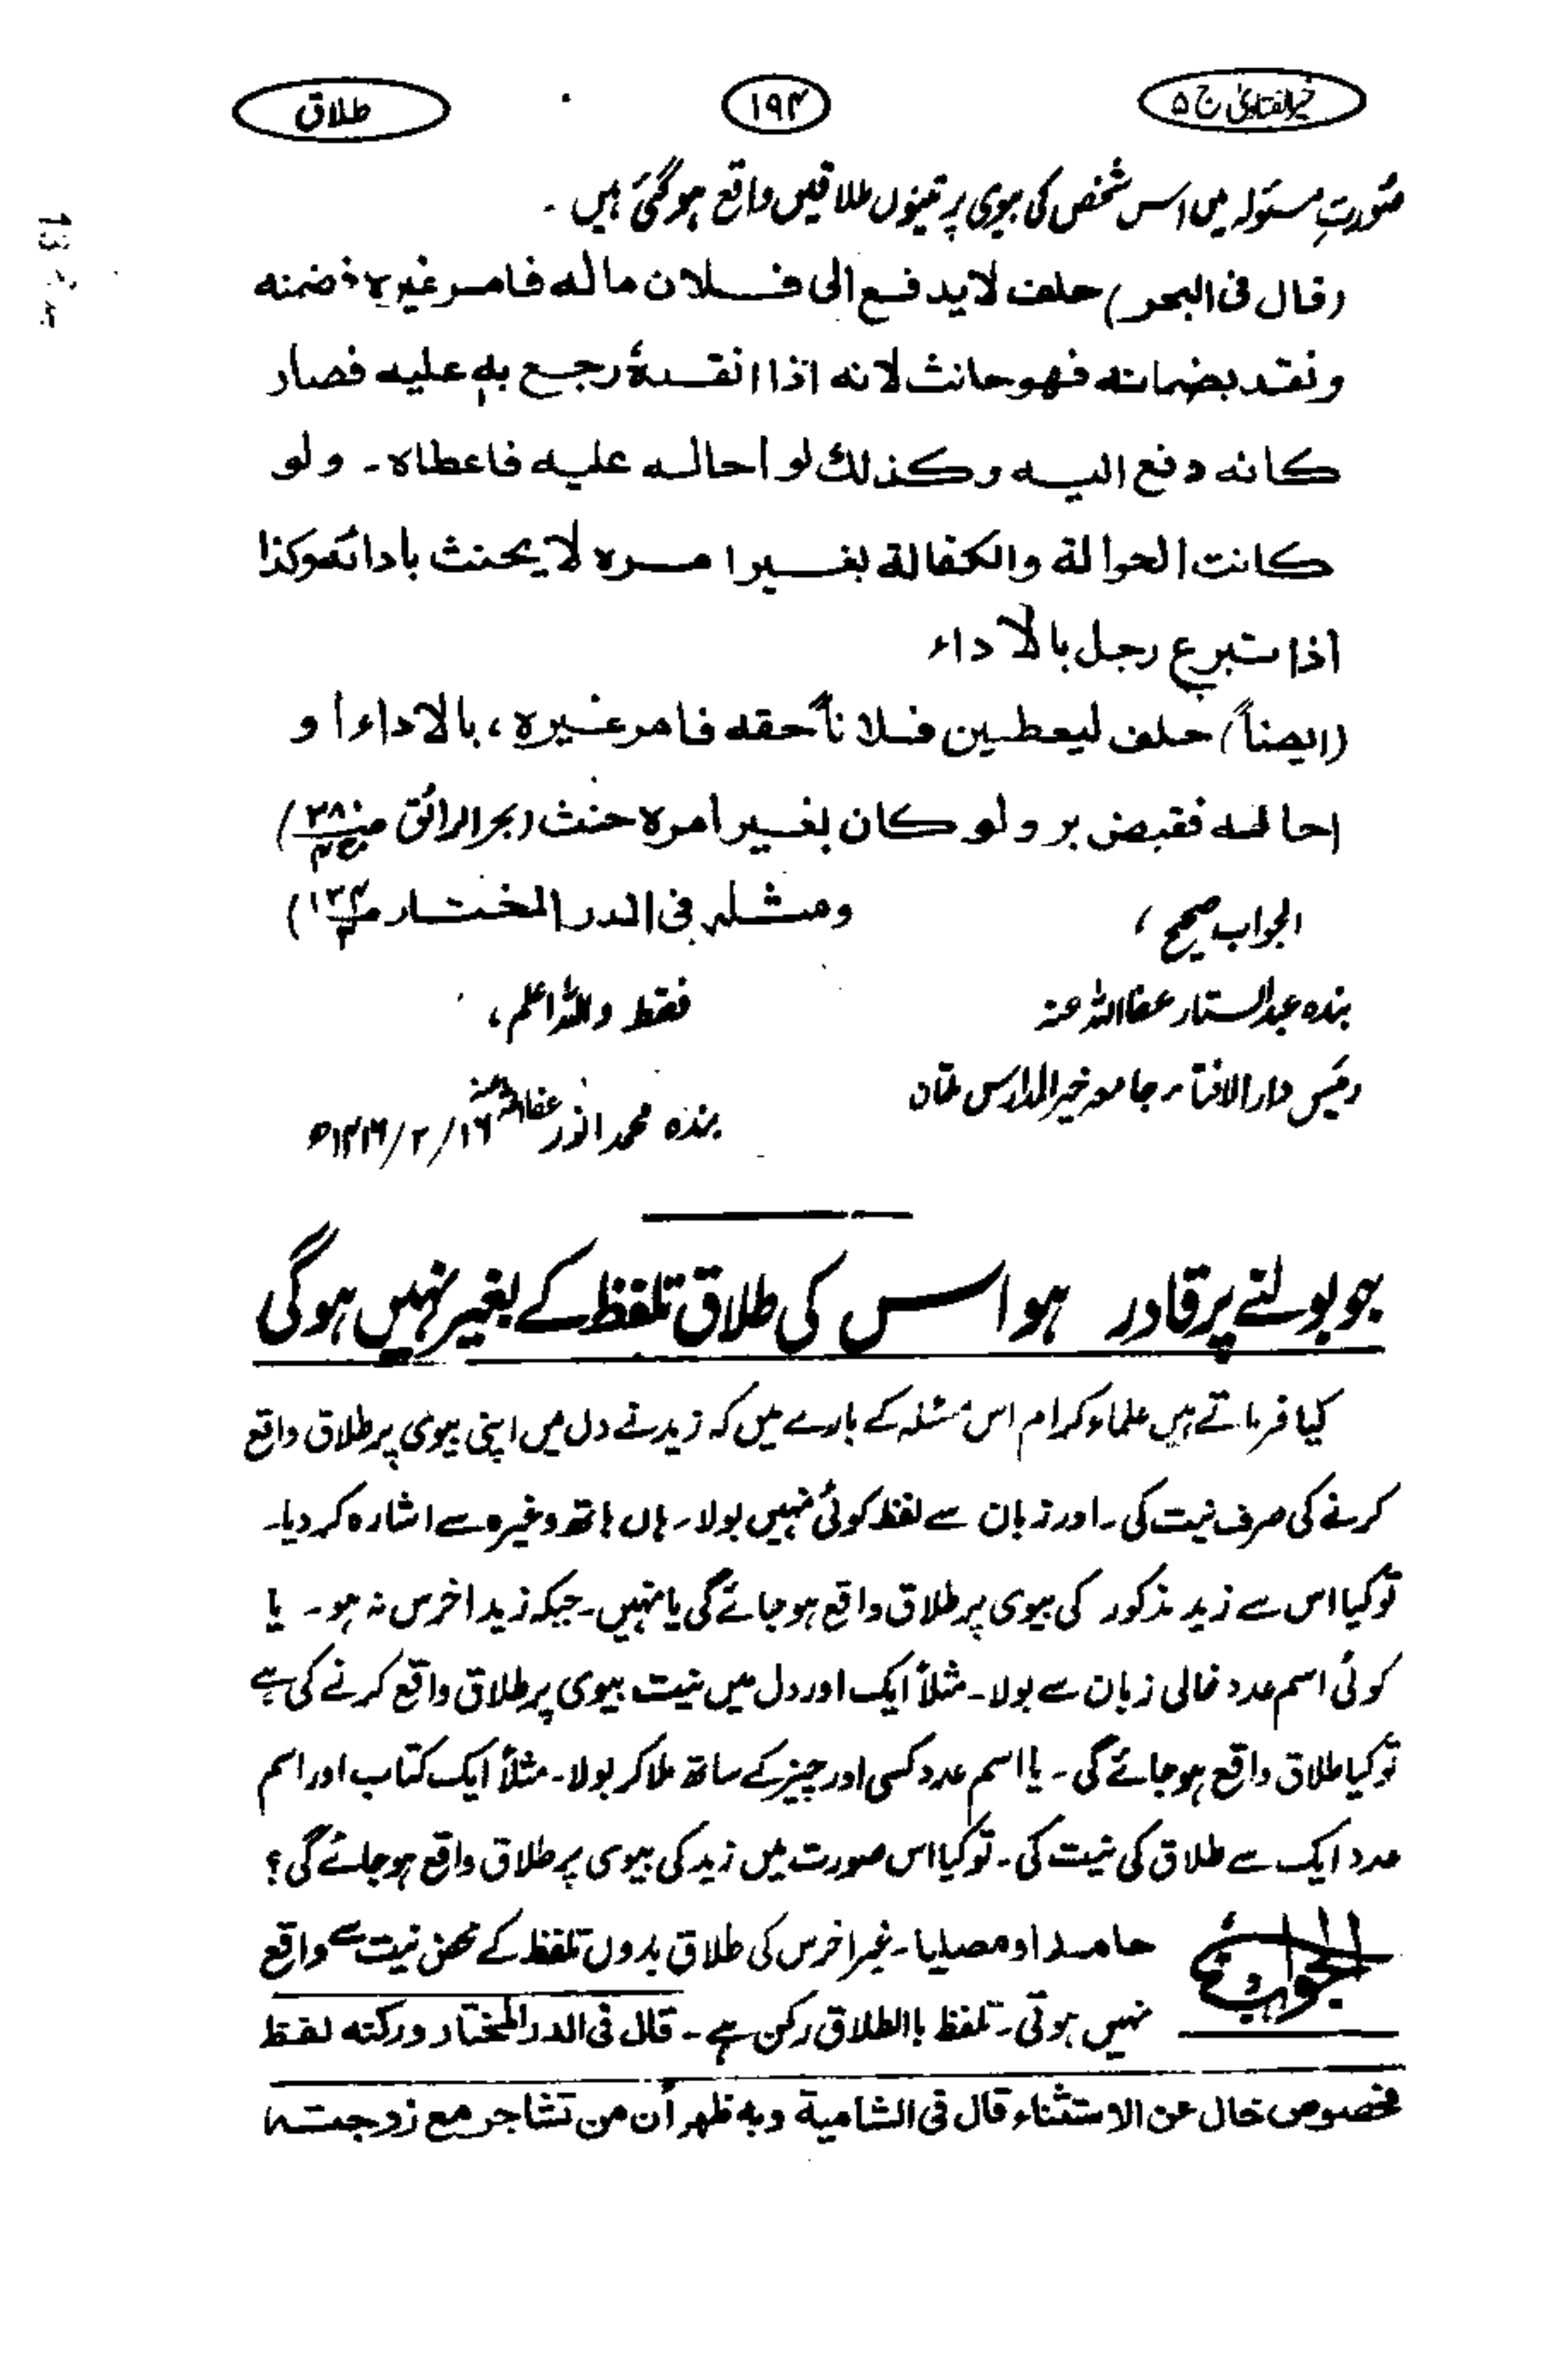 خیر الفتاویٰ ج ۵
۱۹۴
طلاق
صُورتِ مسئولہ میں اس شخص کی بیوی پر تینوں طلاقیں واقع ہوگئی ہیں ۔
(قال فی البحر) حلف لا یدفع الی فلان ماله فامر غیرہ فضمنه
ونقد بضمانته فهو حانث لانه اذا انقدہٗ رجع بهٖ علیه فصار
کانه دفع الیه وکذلك لو احاله علیه فاعطاہ۔ ولو
کانت الحوالة والکفالة بغیر امرہ لا یحنث بادائه وکذا
اذا تبرع رجل بالاداء
(ایضاً) حلف لیعطین فلاناً حقه فامر غیرہ، بالاداء أو
احاله فقبض بر ولو کان بغیر امرہ حنث (بحر الرائق
ومثله فی الدر المختار
الجواب صحیح ،
فقط واللہ اعلم ،
بندہ عبدالستار عفا اللہ عنہ
رئیس دارالافتاء جامعہ خیر المدارس ملتان
بندہ محمد انور عفا اللہ عنہ ۱۶/۲/۱۴۱۶ھ
جو بولنے پر قادر ہو اس کی طلاق تلفظ کے بغیر نہیں ہوگی
کیا فرماتے ہیں علماء کرام اس مسئلہ کے بارے میں کہ زید نے دل میں اپنی بیوی پر طلاق واقع
کرنے کی صرف نیت کی۔ اور زبان سے لفظ کوئی نہیں بولا۔ ہاں ہاتھ وغیرہ سے اشارہ کر دیا۔
تو کیا اس سے زید مذکور کی بیوی پر طلاق واقع ہوجائے گی یا نہیں۔ جبکہ زید اخرس نہ ہو۔ یا
کوئی اسم عدد خالی زبان سے بولا۔ مثلاً ایک اور دل میں نیت بیوی پر طلاق واقع کرنے کی ہے
تو کیا طلاق واقع ہوجائے گی۔ یا اسم عدد کسی اور چیز کے ساتھ ملا کر بولا۔ مثلاً ایک کتاب اور اسم
عدد ایک سے طلاق کی نیت کی۔ تو کیا اس صورت میں زید کی بیوی پر طلاق واقع ہوجائے گی؟
الجواب حامداً و مصلیا۔ غیر اخرس کی طلاق بدون تلفظ کے محض نیت سے واقع
نہیں ہوتی۔ تلفظ باالطلاق رکن ہے۔ قال فی الدر المختار ورکنه لفظ
مخصوص خال عن الاستثناء قال فی الشامیة وبه ظهر أن من تشاجر مع زوجته